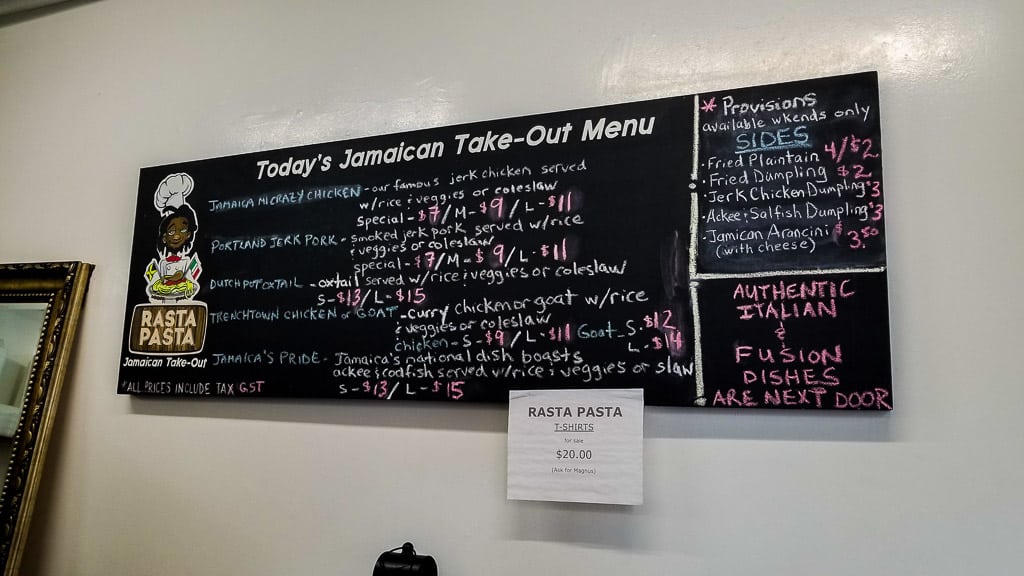 Today's Jamaican Take-Out Menu
JAMAICA MI CRAZY CHICKEN - our famous jerk chicken served
w/rice & veggies or coleslaw
special - $7/M - $9/L - $11
PORTLAND JERK PORK - smoked jerk pork served w/rice
& veggies or coleslaw
special - $7/M - $9/L - $11
DUTCH POT OXTAIL - oxtail served w/rice & veggies or coleslaw
S - $13/L - $15
TRENCHTOWN CHICKEN or GOAT - curry chicken or goat w/rice
& veggies or coleslaw
chicken - S - $9/L - $11 Goat - S - $12
L - $14
JAMAICA'S PRIDE - Jamaica's national dish boasts
ackee & codfish served w/rice & veggies or slaw
S - $13/L - $15
*ALL PRICES INCLUDE TAX GST
RASTA
PASTA
Jamaican Take-Out
* Provisions
available wkends only
SIDES
· Fried Plaintain 4/$2
· Fried Dumpling $2
· Jerk Chicken Dumpling $3
· Ackee & Salfish Dumpling $3
· Jamican Arancini $3.50
(with cheese)
AUTHENTIC
ITALIAN
&
FUSION
DISHES
ARE NEXT DOOR
RASTA PASTA
T-SHIRTS
for sale
$20.00
(Ask for Magnus)